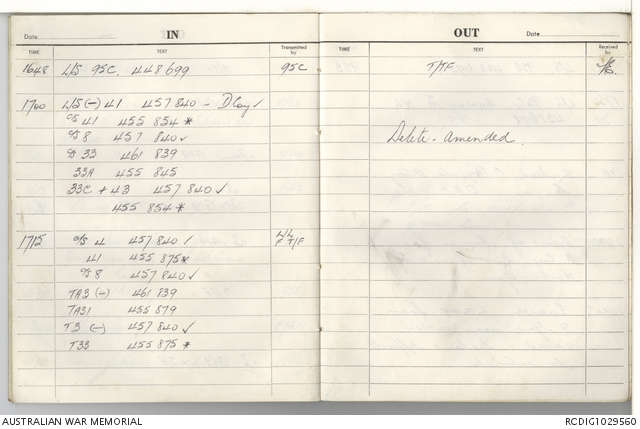 Date IN
TIME TEXT Transmitted by
1648 L/S 95C. 448 699 95C
1700 L/S (-) 41 457 840 - Dloy ✓
C/S 41 455 854 *
C/S 8 457 840 ✓
33 461 839
33A 455 845
33C + 43 457 840 ✓
455 854 *
1715 C/S 4 457 840 ✓ T/F
41 455 875 *
C/S 8 457 840 ✓
TA3 (-) 461 839
TA31 455 879
T3 (-) 457 840 ✓
T33 455 875 *
OUT Date
TIME TEXT Received by
T/TF
Delete - amended.
AUSTRALIAN WAR MEMORIAL RCDIG1029560